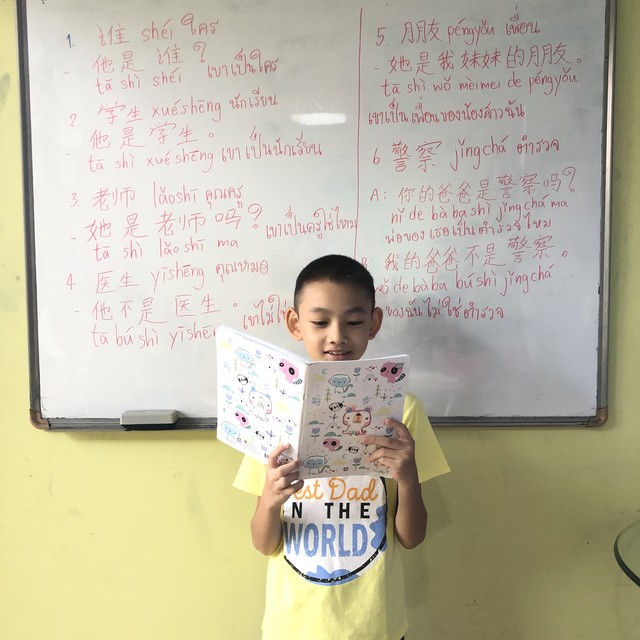 1. 谁 shéi ใคร
- 他是谁?
tā shì shéi เขาเป็นใคร
2. 学生 xuéshēng นักเรียน
- 他是学生。
tā shì xuéshēng เขาเป็นนักเรียน
3. 老师 lǎoshī คุณครู
- 她是老师吗?
tā shì lǎoshī ma เขาเป็นครูใช่ไหม
4. 医生 yīshēng คุณหมอ
- 他不是医生。
tā bú shì yīshēng เขาไม่ใช่
5. 朋友 péngyǒu เพื่อน
- 她是我妹妹的朋友。
tā shì wǒ mèimei de péngyǒu
เขาเป็นเพื่อนของน้องสาวฉัน
6. 警察 jǐngchá ตำรวจ
A: 你的爸爸是警察吗?
nǐ de bàba shì jǐngchá ma
พ่อของเธอเป็นตำรวจไหม
我的爸爸不是警察。
wǒ de bàba bú shì jǐngchá
ของฉันไม่ใช่ตำรวจ
Best Dad
IN THE
WORLD